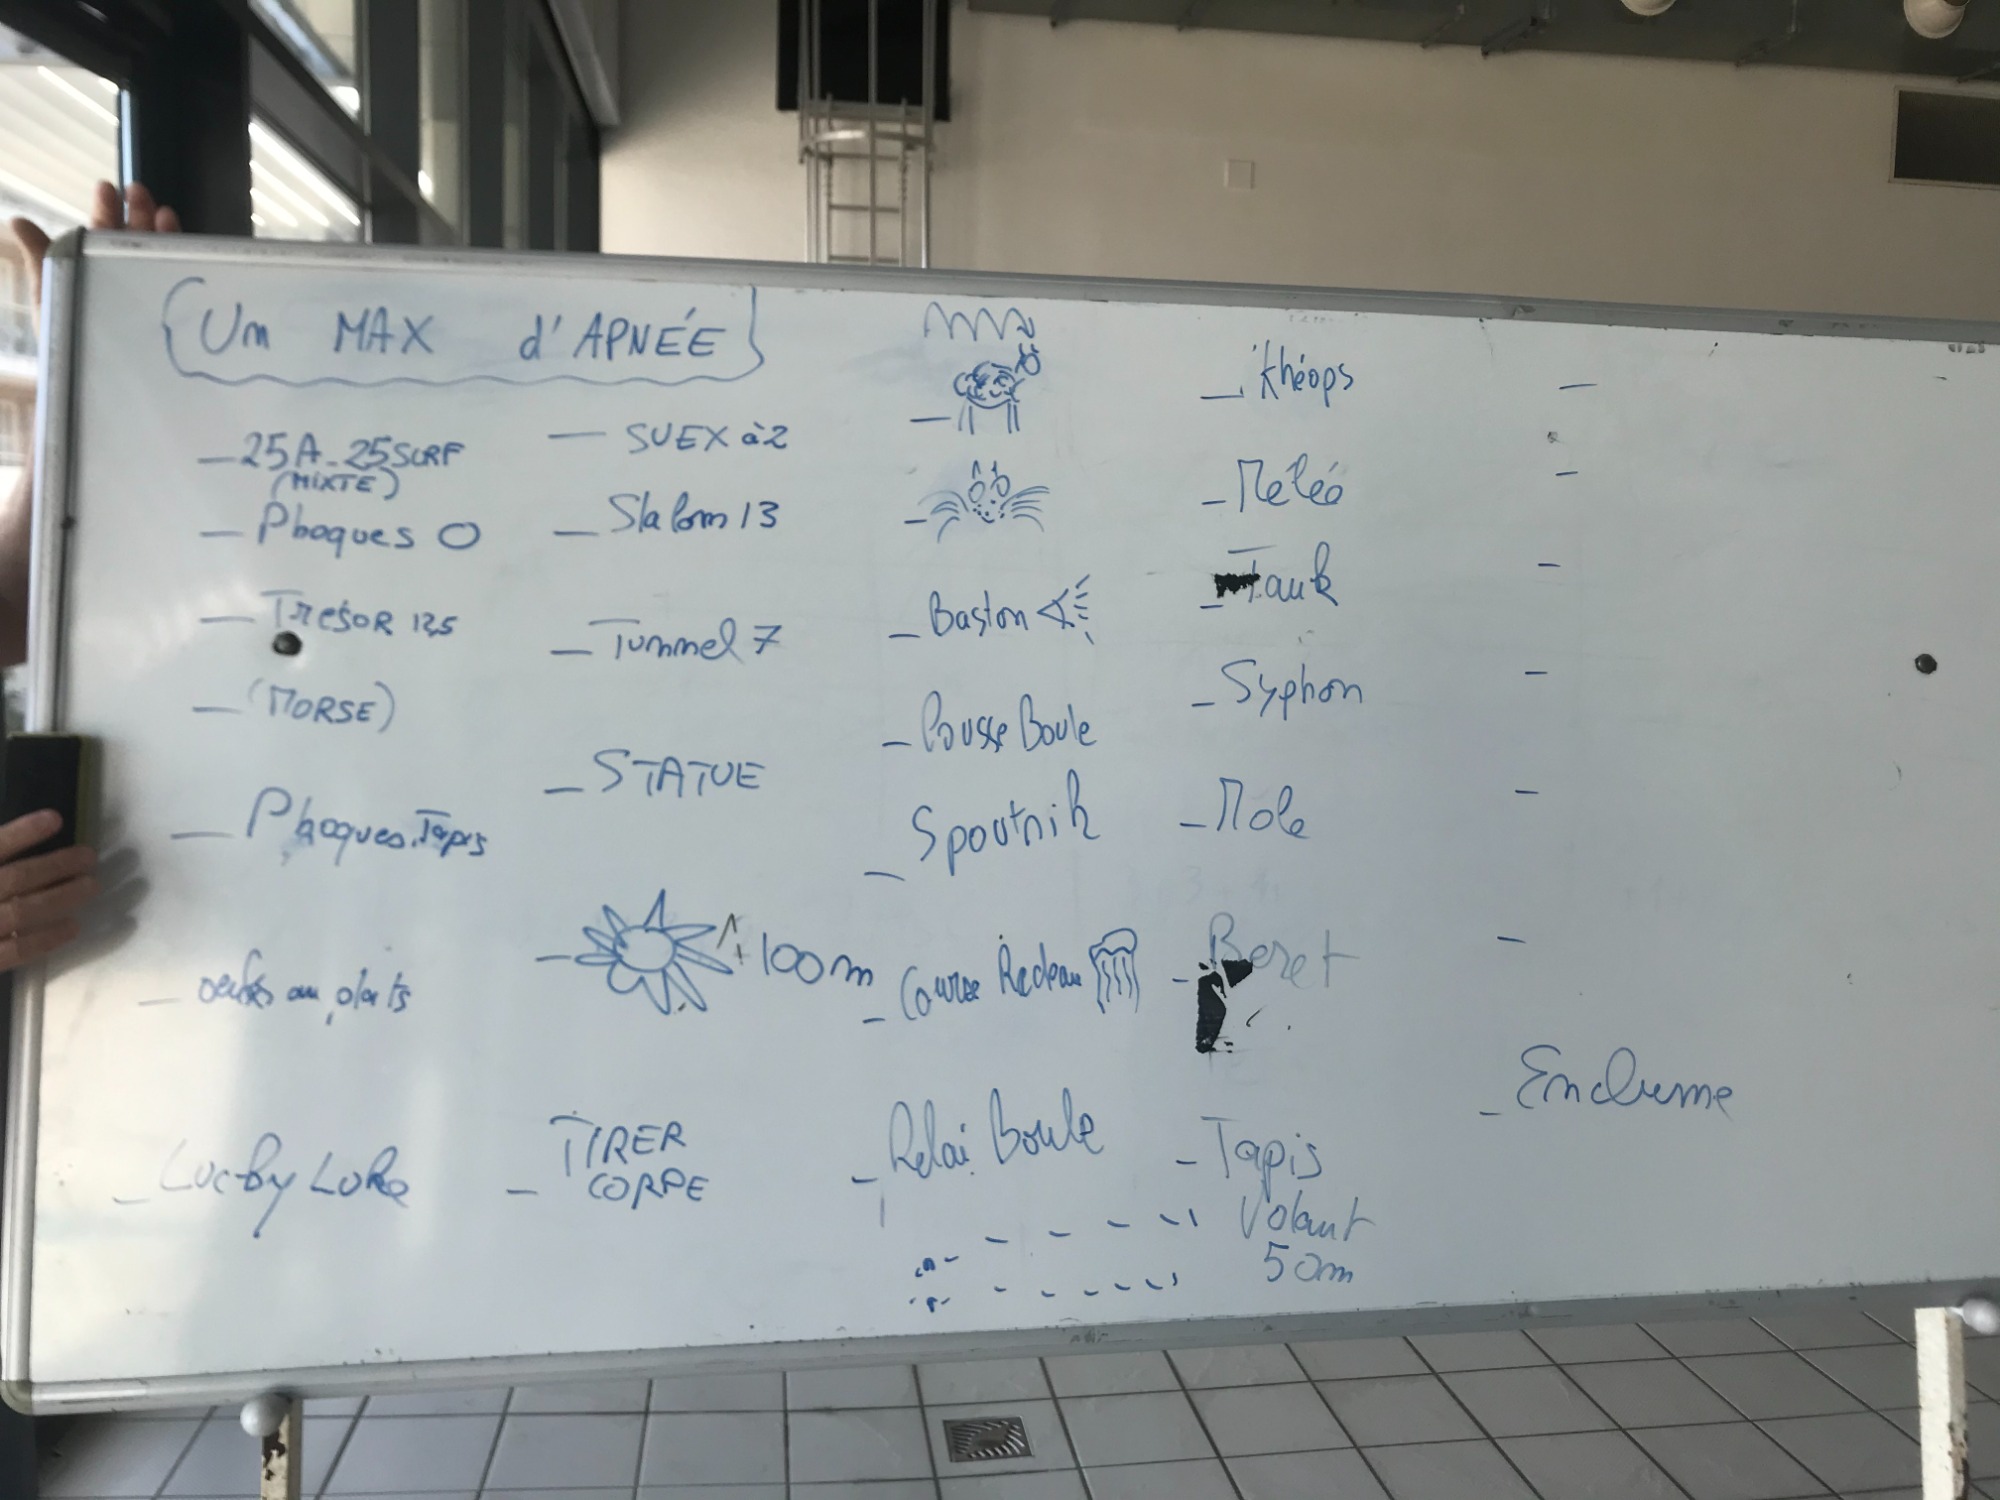 Um MAX d'APNÉE
— 25A - 25 SURF
(MIXTE)
— Phoques O
— Trésor 12,5
— (MORSE)
— Phoques Tapis
— oeufs au plats
— Lucky Luke
— SUEX à 2
— Slalom 13
— Tunnel 7
— STATUE
— 100m
— TIRER
CORPE
— Baston
— Pousse Boule
— Spoutnik
— Course Radeau
— Relai Boule
— Khéops
— Météo
— Tank
— Syphon
— Mole
— Beret
— Tapis
Volant
50m
— Enclume